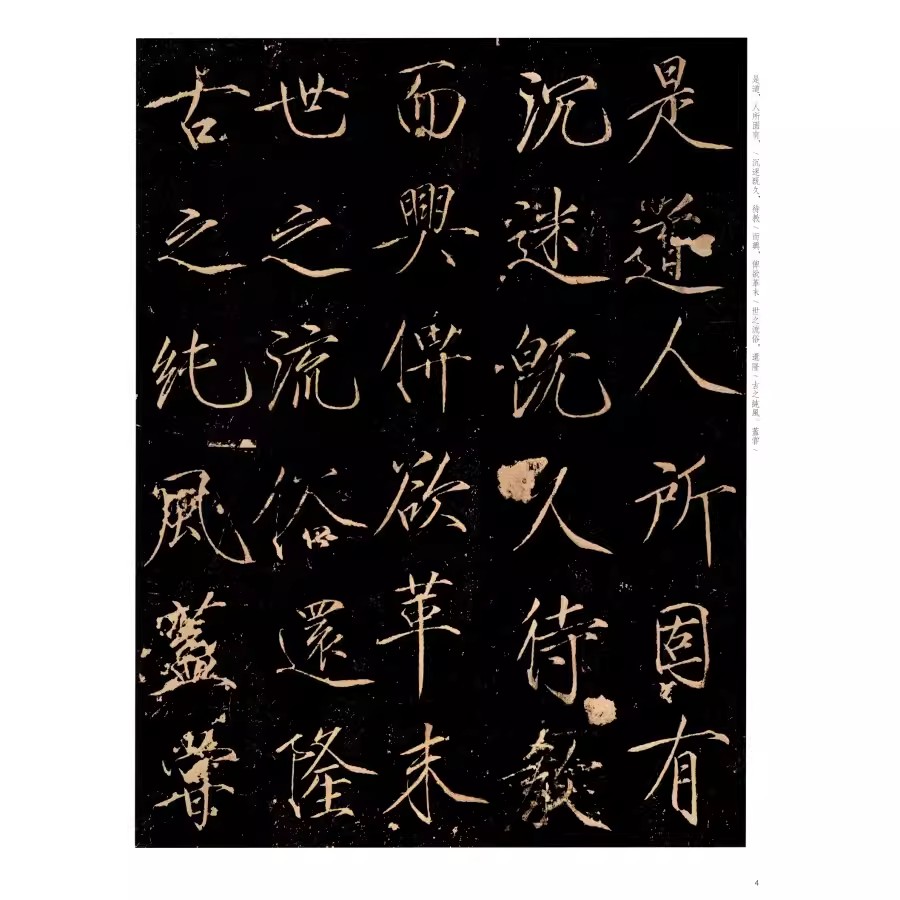 是道，人所固有，/沉迷既久，待教/而興，俾欲革末/世之流俗，還隆/古之純風。蓋嘗/
是道人所固有
沉迷既久待教
而興俾欲革末
世之流俗還隆
古之純風蓋嘗
4